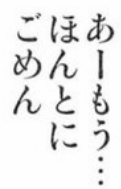 あーもう…
ほんとに
ごめん